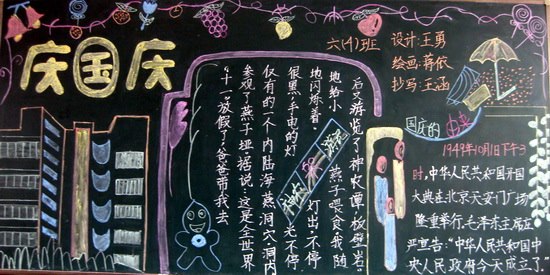 庆国庆
六(4)班
设计:王勇
绘画:蒋依
抄写:王涵
“十一”放假了,爸爸带我去
参观了燕子垭。据说,这是全世界
仅有的一个内陆海燕洞穴,洞内
很黑,手电的灯光不停
地闪烁着。灯出,不停
地给小燕子喂食。我随
后又游览了神农潭、板壁岩
神农
国庆的由来
1949年10月1日下午3
时,中华人民共和国开国
大典在北京天安门广场
隆重举行,毛泽东主席庄
严宣告:“中华人民共和国中
央人民政府今天成立了!”